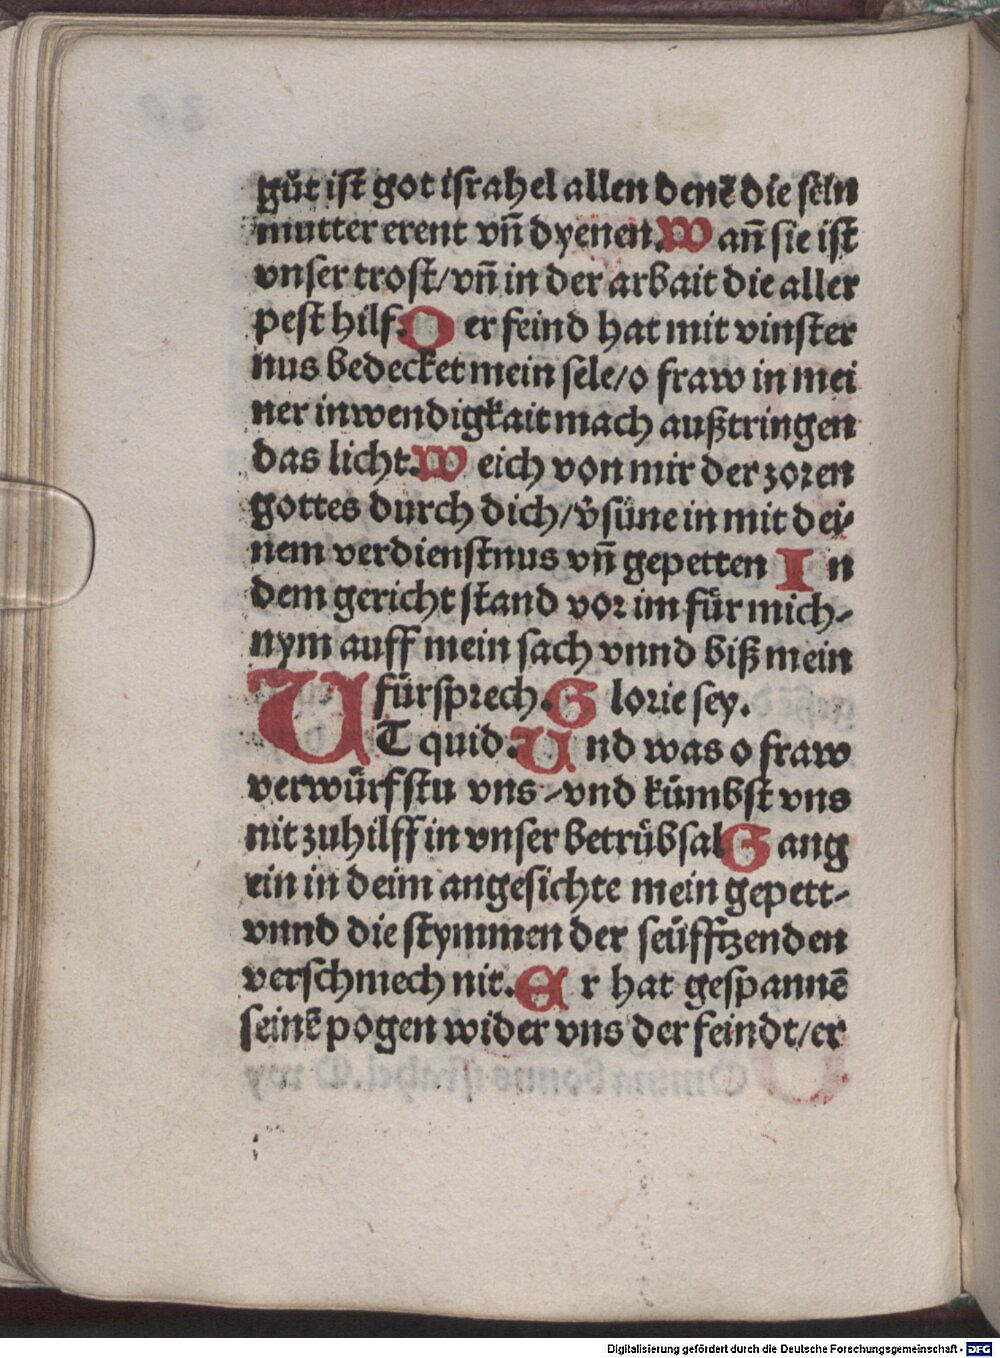 gůt ist got israhel allen denē die sein
mutter erent vñ dyenen. W ann̄ sie ist
vnser trost/vñ in der arbait die aller
pest hilf. D er feind hat mit vinster
nus bedecket mein sele/o fraw in mei
ner inwendigkait mach außtringen
das licht. W eich von mir der zoren
gottes durch dich/v̊süne in mit dei⸗
nem verdienstnus vñ gepetten I n
dem gericht stand vor im für mich⸗
nym auff mein sach vnnd biß mein
fürsprech. G lorie sey.
UT quid. U nd was o fraw
verwürfstu vns ⸗vnd kümbst vns
nit zuhilff in vnser betrübsal G ang
ein in deim angesichte mein gepett⸗
vnnd die stymmen der seüfftzenden
verschmech nit. E r hat gespannē
seinē pogen wider vns der feindt/er
Digitalisierung gefördert durch die Deutsche Forschungsgemeinschaft - DFG